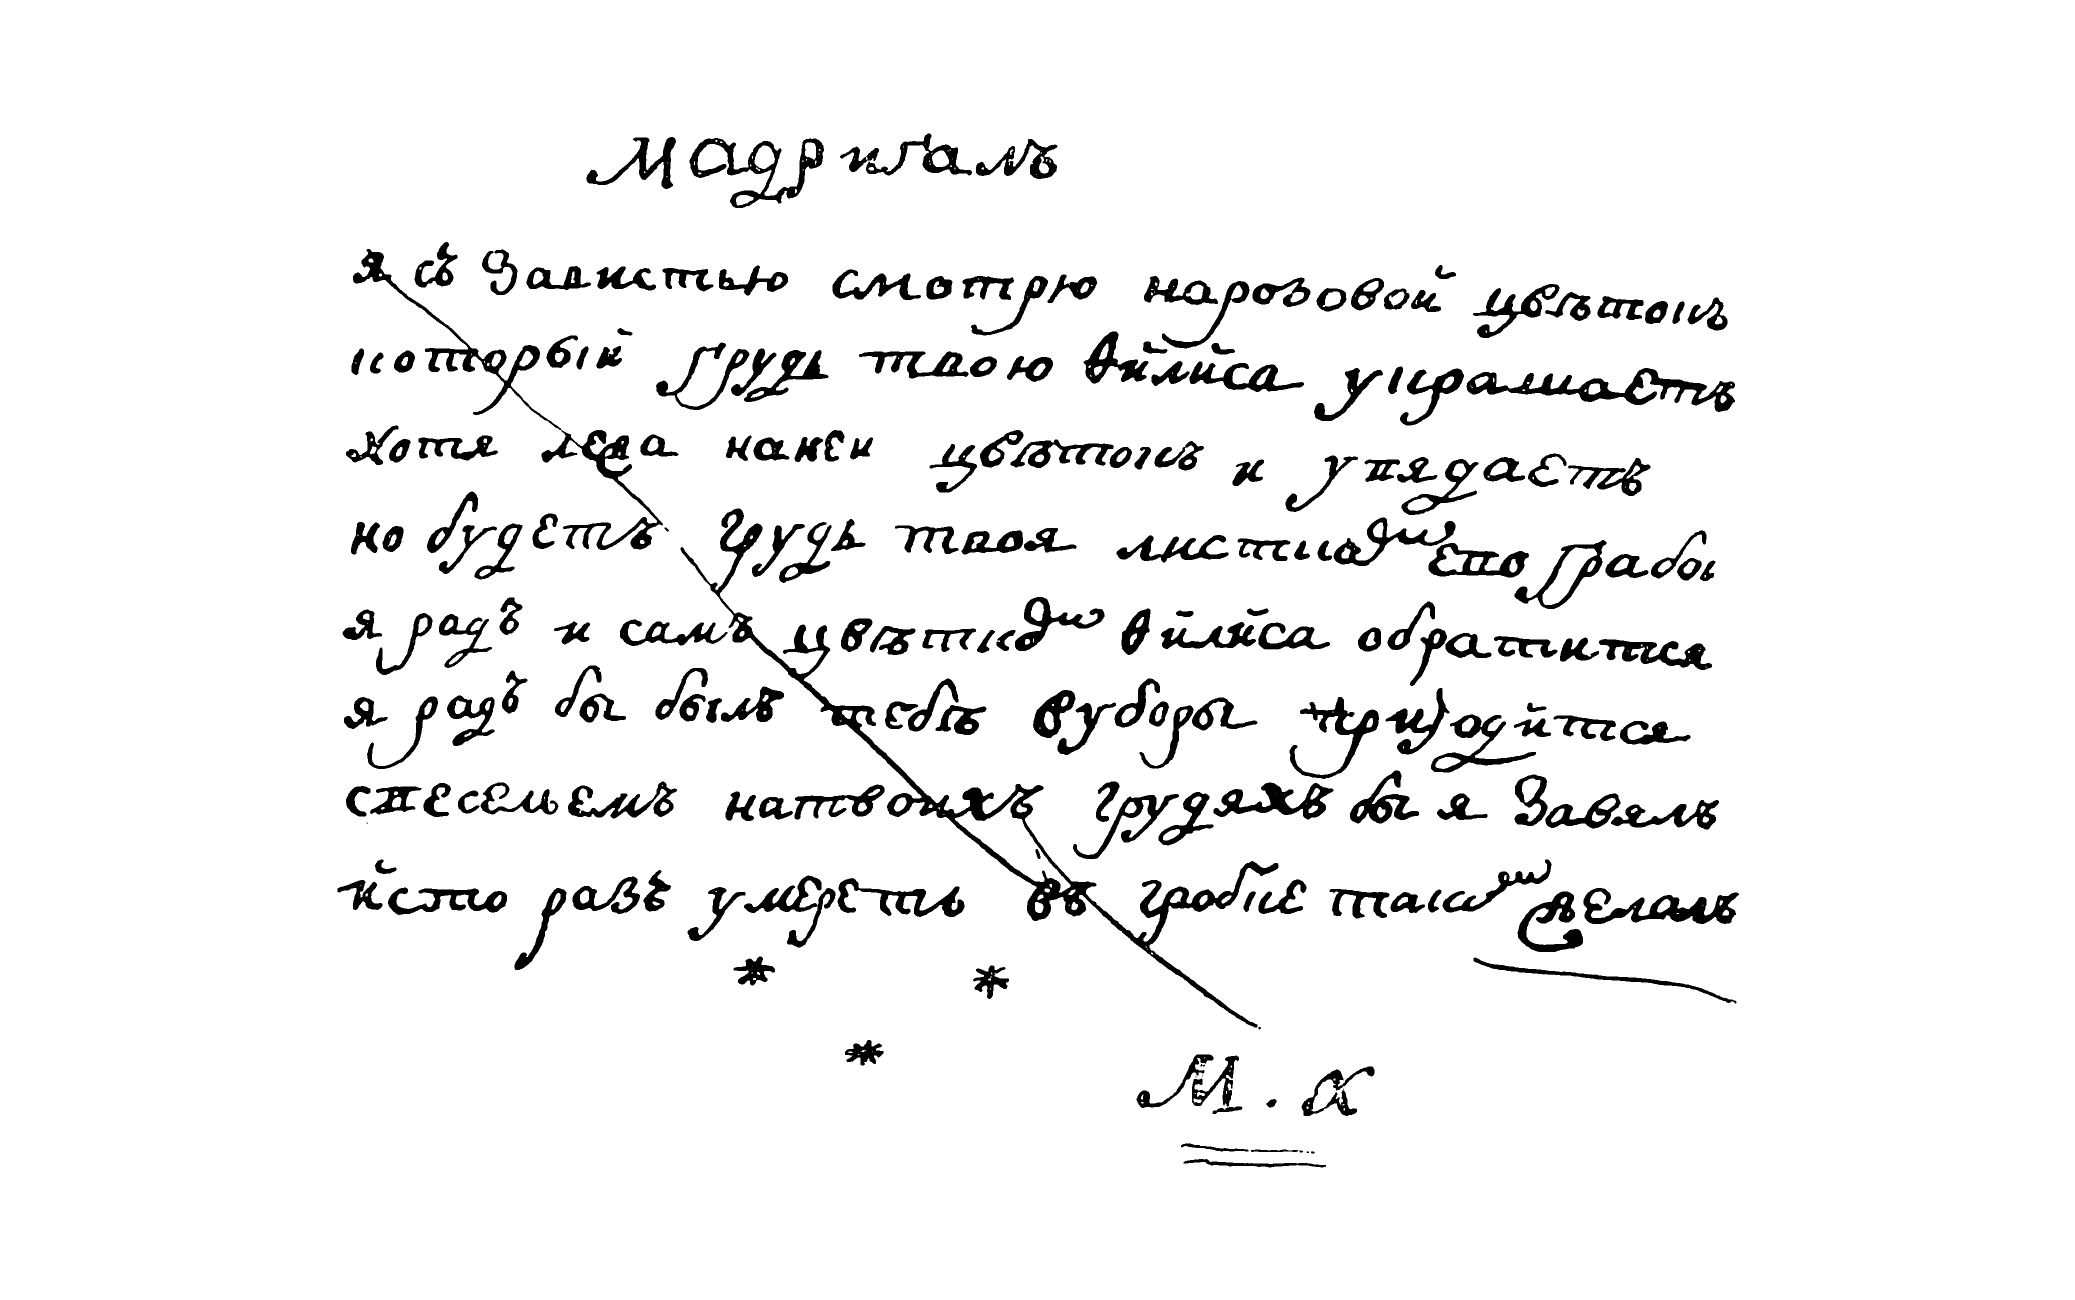 Мадригалъ
я съ Завистью смотрю нарозовой цвѣтокъ
который грудь твою Ѳйлйса украшаетъ
хотя лежа накеи цвѣтокъ и увядаетъ
но будетъ грудь твоя листкадм ево гробы
я радъ и самъ цвѣткодм Ѳйлйса обратится
я радъ бы былъ тебѣ вуборы пригодйтся
свесельемъ натвоихъ грудяхъ бы я Завялъ
йсто разъ умереть въ гробке таком
* *
*
М. х